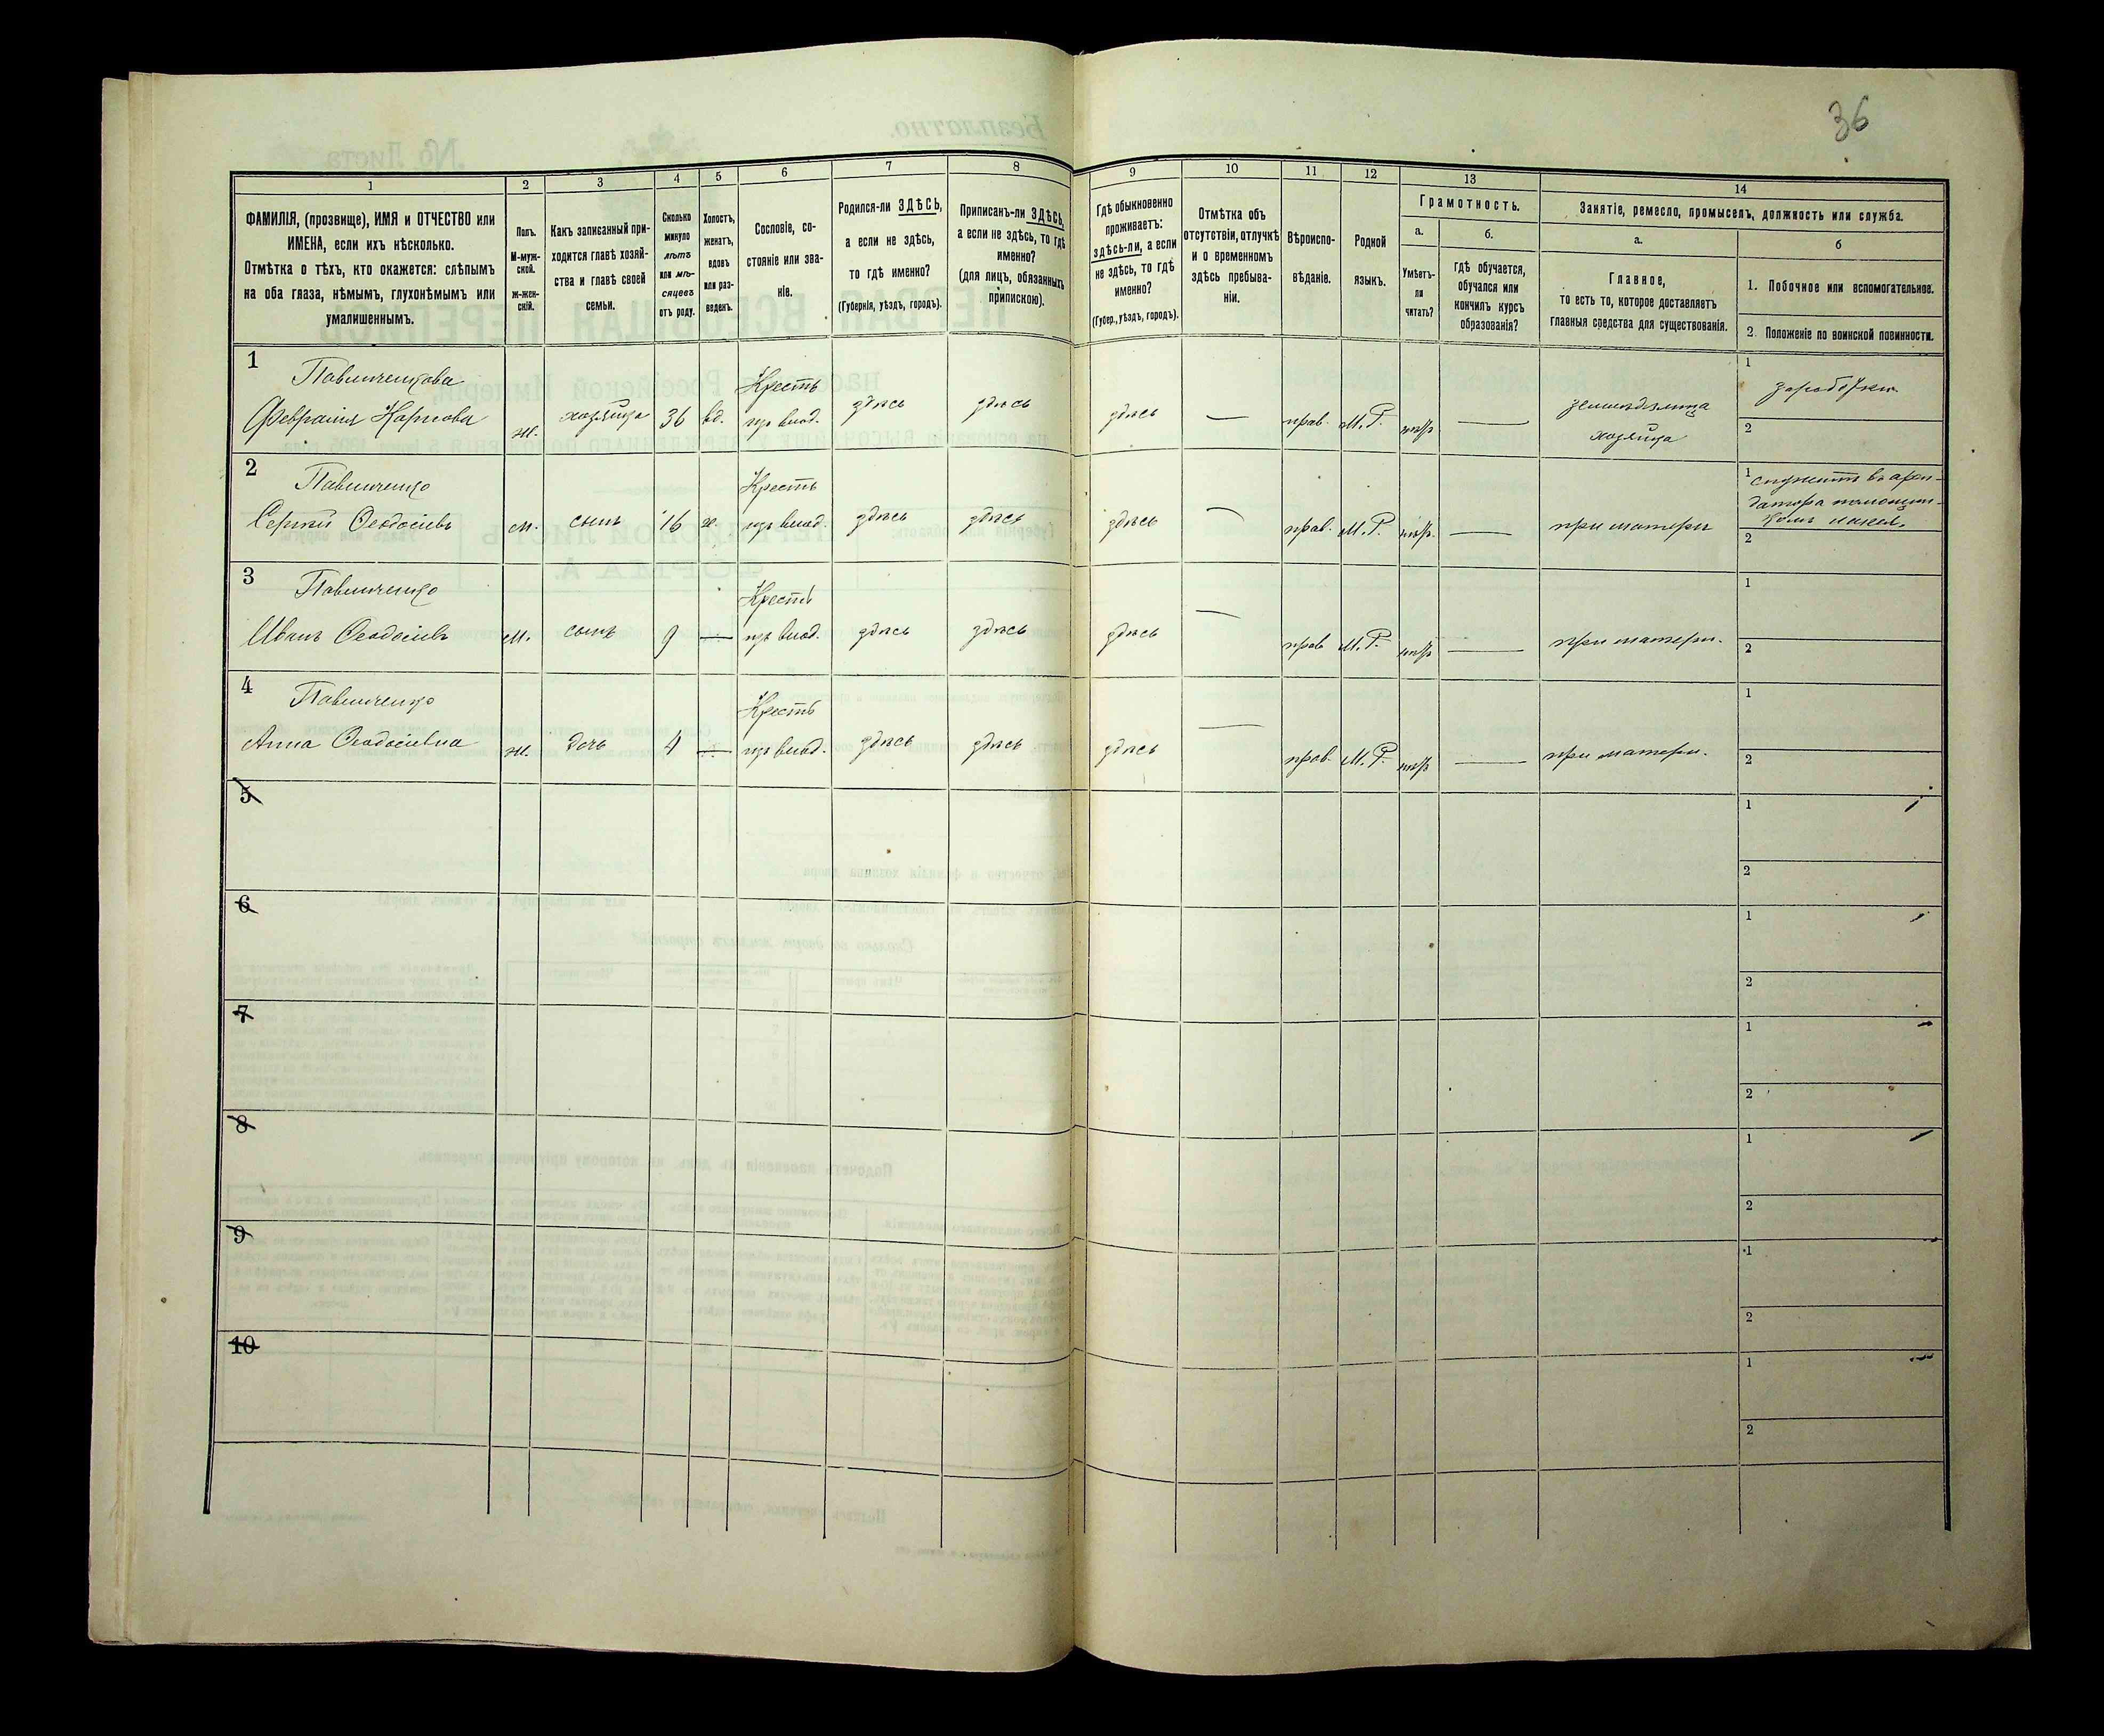 36
1 2 3 4 5 6 7 8 9 10 11 12 13 14
ФАМИЛІЯ, (прозвище), ИМЯ и ОТЧЕСТВО или
ИМЕНА, если ихъ нѣсколько.
Отмѣтка о тѣхъ, кто окажется: слѣпымъ
на оба глаза, нѣмымъ, глухонѣмымъ или
умалишеннымъ.
Полъ.
М-муж-
ской.
ж-жен-
скій.
Какъ записанный при-
ходится главѣ хозяй-
ства и главѣ своей
семьи.
Сколько
минуло
лѣтъ
или мѣ-
сяцевъ
отъ роду.
Холостъ,
женатъ,
вдовъ
или раз-
веденъ.
Сословіе, со-
стояніе или зва-
ніе.
Родился-ли ЗДѢСЬ,
а если не здѣсь,
то гдѣ именно?
(Губернія, уѣздъ, городъ).
Приписанъ-ли ЗДѢСЬ,
а если не здѣсь, то гдѣ
именно?
(для лицъ, обязанныхъ
припискою).
Гдѣ обыкновенно
проживаетъ:
здѣсь-ли, а если
не здѣсь, то гдѣ
именно?
(Губер., уѣздъ, городъ).
Отмѣтка объ
отсутствіи, отлучкѣ
и о временномъ
здѣсь пребыва-
ніи.
Вѣроиспо-
вѣданіе.
Родной
языкъ.
Грамотность.
а.
Умѣетъ-
ли
читать?
б.
гдѣ обучается,
обучался или
кончилъ курсъ
образованія?
Занятіе, ремесло, промыселъ, должность или служба.
а.
Главное,
то есть то, которое доставляетъ
главныя средства для существованія.
б
1. Побочное или вспомогательное.
2. Положеніе по воинской повинности.
1
Павличенкова Крестъ
Февраlія Карпова ж. хозяйка 36 вд. изъ влад. здѣсь здѣсь здѣсь — прав. М.Р. нѣтъ — земледѣлица
хозяйка
1 заработки
2
2
Павличенко Крестъ
Сергѣй Ѳеодосіевъ м. сынъ 16 х. изъ влад. здѣсь здѣсь здѣсь — прав. М.Р. нѣтъ — при матери
1 служитъ въ арен-
датора
2
3
Павличенко Крестъ
Иванъ Ѳеодосіевъ м. сынъ 9 — изъ влад. здѣсь здѣсь здѣсь — прав М.Р. нѣтъ — при матери.
1
2
4
Павличенко Крестъ
Анна Ѳеодосіевна ж. дочь 4 — изъ влад. здѣсь здѣсь здѣсь — прав. М.Р. нѣтъ — при матери.
1
2
5
1
2
6
1
2
7
1
2
8
1
2
9
1
2
10
1
2